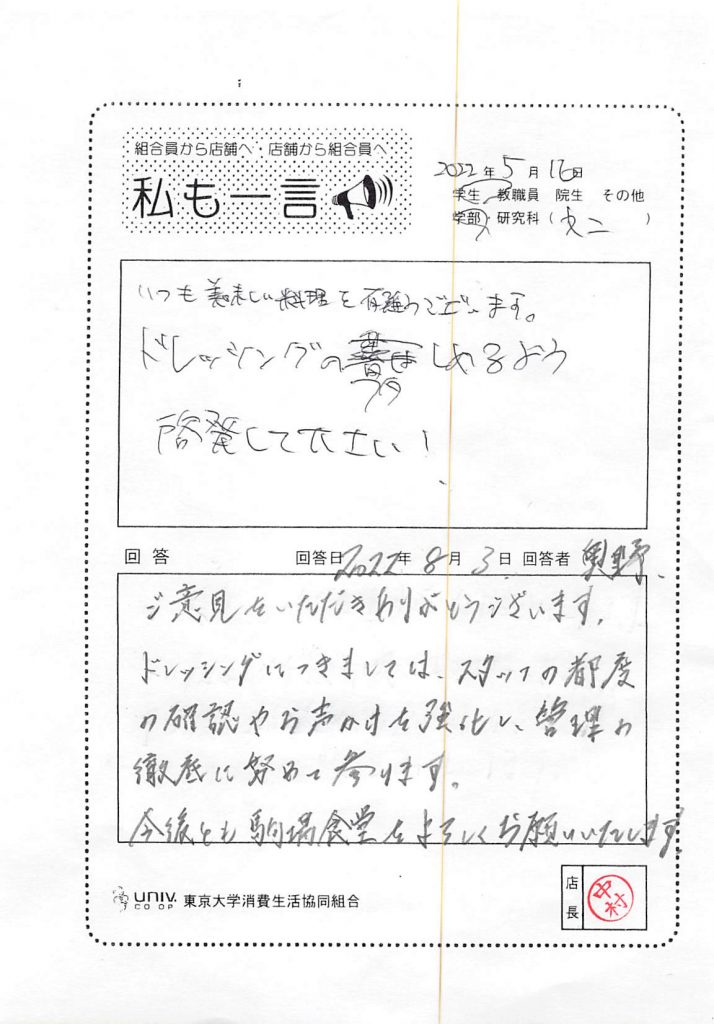 組合員から店舗へ・店舗から組合員へ
私も一言
2022年5月16日
学生 教職員 院生 その他
学部 研究科(文二)
いつも美味しい料理を有難うございます。
ドレッシングのフタしめるよう
啓発して下さい!
回答 回答日2022年8月3日 回答者 奥野
ご意見をいただきありがとうございます。
ドレッシングにつきましては、スタッフの都度
の確認やお声かけを強化し、管理の
徹底に努めて参ります。
今後とも駒場食堂をよろしくお願いいたします。
UNIV.
CO-OP
東京大学消費生活協同組合
店長
中村